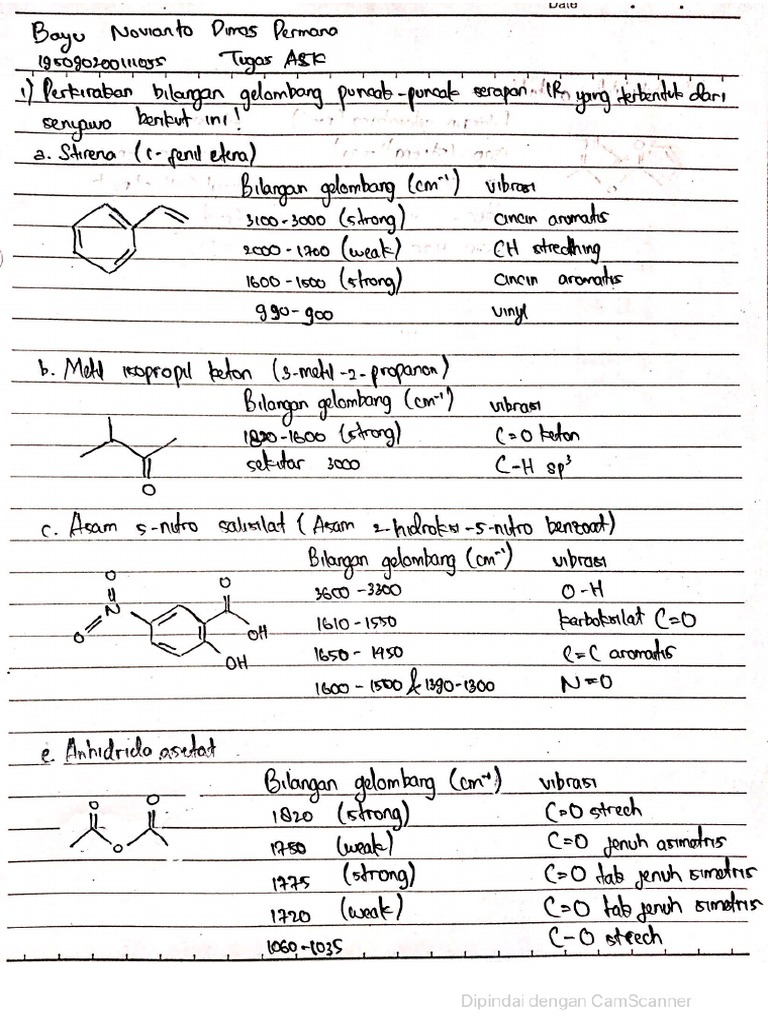 Date
Bayu Novianto Dimas Permana
195090200111035 Tugas ASK
1) Perkiraban bilangan gelombang puncak-puncak serapan IR yang terbentuk dari
senyawa berikut ini!
a. Stirena (1-fenil etena)
Bilangan gelombang (cm⁻¹) vibrasi
3100-3000 (strong) cincin aromatis
2000-1700 (weak) CH stredhing
1600-1500 (strong) cincin aromatis
990-900 vinyl
b. Metil isopropil keton (3-metil-2-propanon)
Bilangan gelombang (cm⁻¹) vibrasi
1820-1600 (strong) C=O keton
sekitar 3000 C-H sp³
O
c. Asam 5-nitro salisilat (Asam 2-hidroksi-5-nitro benzoat)
Bilangan gelombang (cm⁻¹) vibrasi
O O 3600-3300 O-H
N O OH 1610-1550 karboksilat C=O
OH 1650-1450 C=C aromatis
1600-1500 & 1390-1300 N=O
e. Anhidrida asetat
Bilangan gelombang (cm⁻¹) vibrasi
O O 1820 (strong) C=O strech
O 1750 (weak) C=O jenuh asimetris
1775 (strong) C=O tab jenuh simetris
1720 (weak) C=O tab jenuh simetris
1060-1035 C-O strech
Dipindai dengan CamScanner